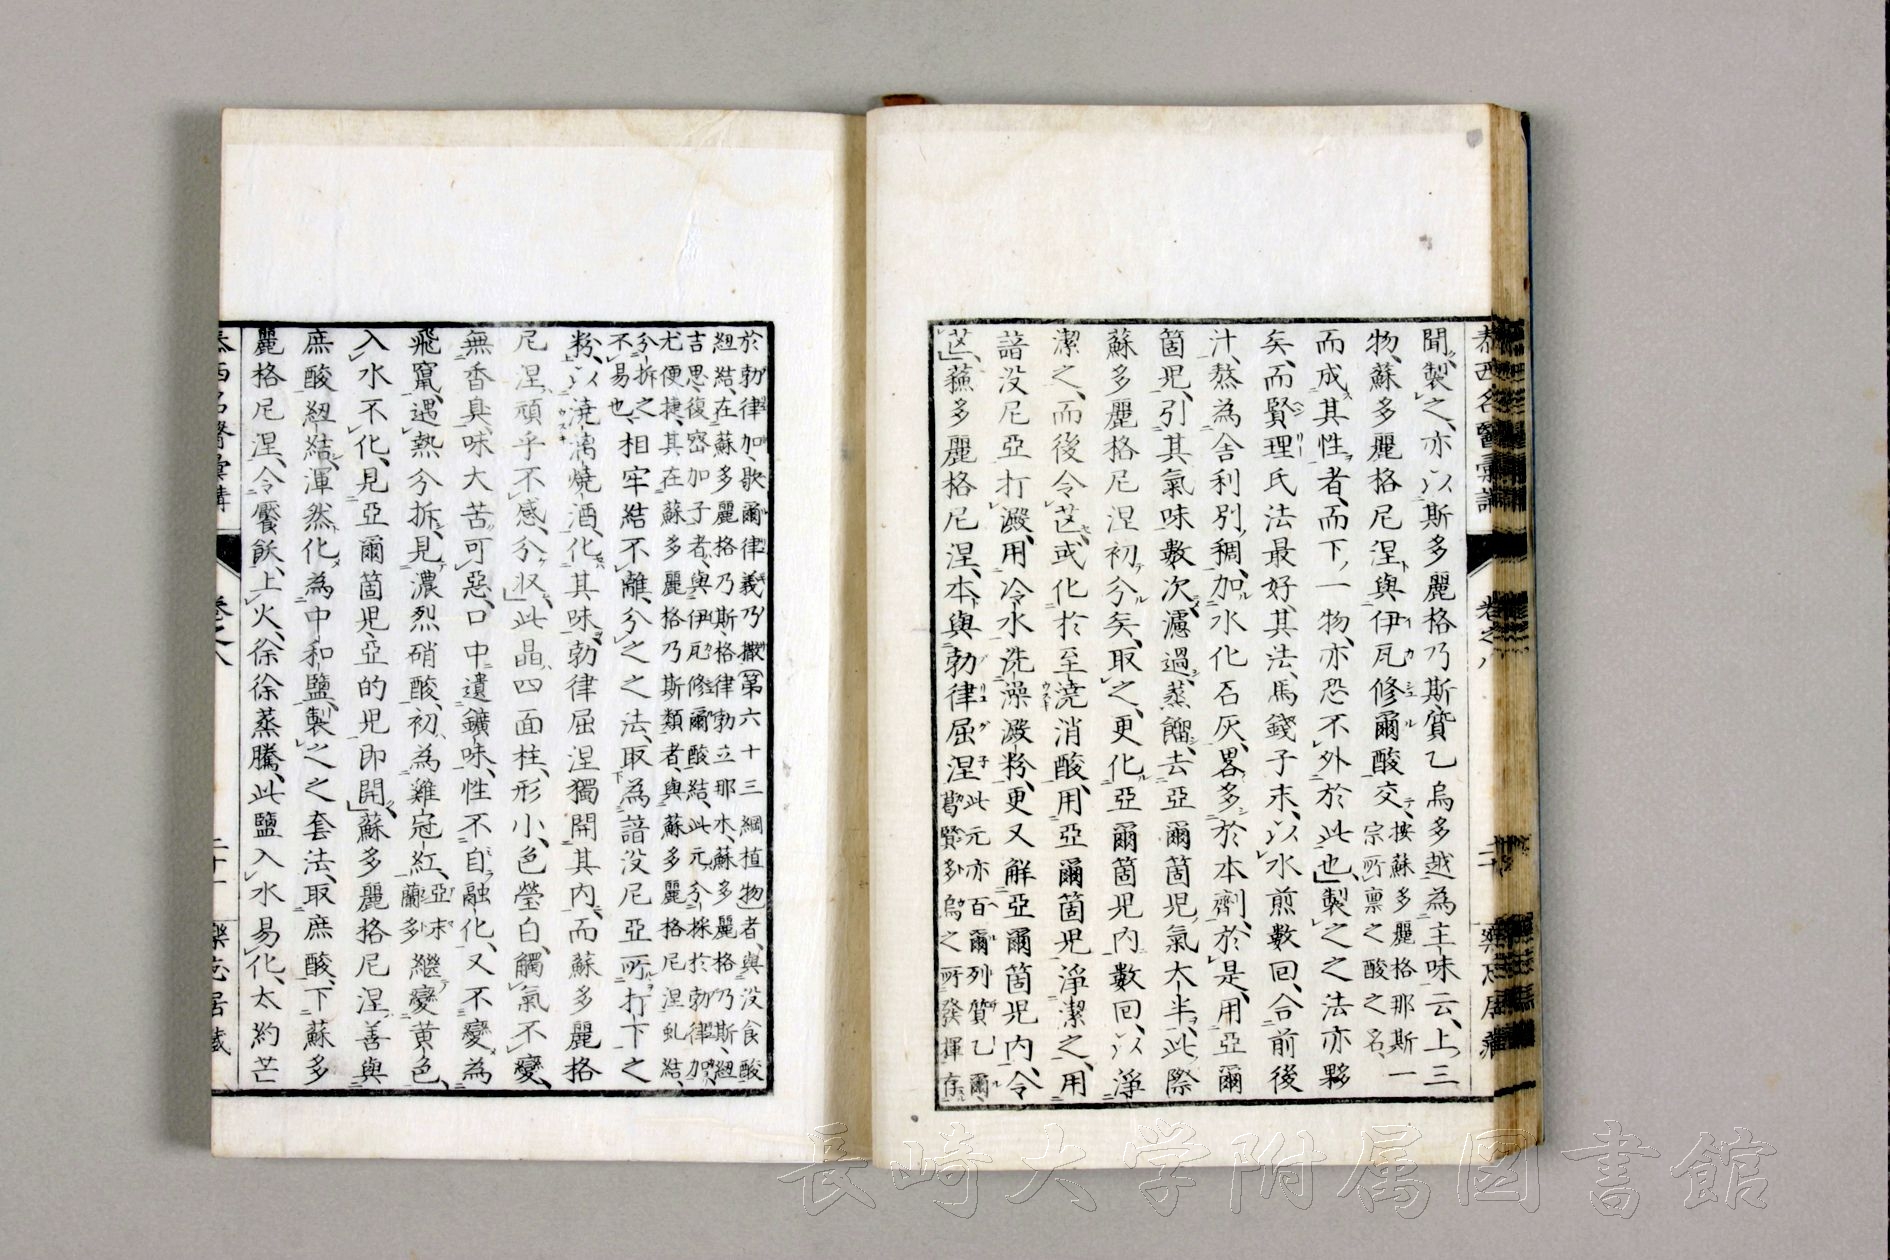 泰西名醫彙講 卷之八 二十 樂志居藏
聞製之亦以斯多麗格乃斯貨乙烏多越為主味云上三
物蘇多麗格尼涅與伊瓦修爾酸交 按蘇多麗格那斯一
宗所禀之酸之名
而成其性者而下一物亦恐不外於此也製之之法亦夥
矣而賢理氏法最好其法馬錢子末以水煎數回合前後
汁熬為舍利別稠加水化石灰畧多於本劑於是用亞爾
箇児引其氣味數次濾過蒸餾去亞爾箇児氣大半此際
蘇多麗格尼涅初分矣取之更化亞爾箇児內數回以淨
潔之而後令芑或化於至澆消酸用亞爾箇児淨潔之用
諳没尼亞打澱用冷水洗澡澱粉更又解亞爾箇児内令
芑蘓多麗格尼涅本與勃律屈涅 此元亦百爾列質乙爾
葛賢多烏之所發揮存
於勃律加歇爾律義乃撒第六十三綱植物者與没食酸
紐結在蘇多麗格乃斯格律勃立那水蘇多麗格乃斯紐
吉思復窑加子者與伊瓦修爾酸結此元分採於勃律加
尤便捷其在蘇多麗格乃斯類者與蘇多麗格尼涅虬結
分拆之
不易也 相牢結不離分之之法取為諳没尼亞所打下之
粉以澆漓燒酒化其味勃律屈涅獨開其内而蘇多麗格
尼涅頑乎不感分収此晶四面柱形小色瑩白觸氣不變
無香臭味大苦可惡口中遺鑛味性不自融化又不變為
飛竄遇熱分拆見濃烈硝酸初為雞冠紅 亞末
蘭多 繼變黄色
入水不化見亞爾箇児亞的児即開蘇多麗格尼涅善與
庶酸紐結渾然化為中和鹽製之之套法取庶酸下蘇多
麗格尼涅令饜飫上火徐徐蒸騰此鹽入水易化太約芒
泰西名醫彙講 卷之八 二十一 樂志居藏
長崎大学附属図書館